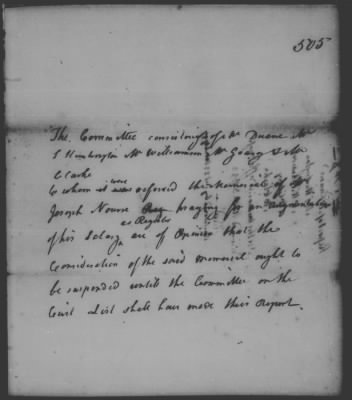 505
The Committee consisting of Mr Duane Mr
S Huntington Mr Williamson Mr Gerry & Mr
Clarke
to whom was were referred the Memorial of Mr
Joseph Nourse praying for an augmentation
of his Salary as Register are of Opinion that the
Consideration of the said memorial ought to
be suspended until the Committee on the
Civil List shall have made their Report.